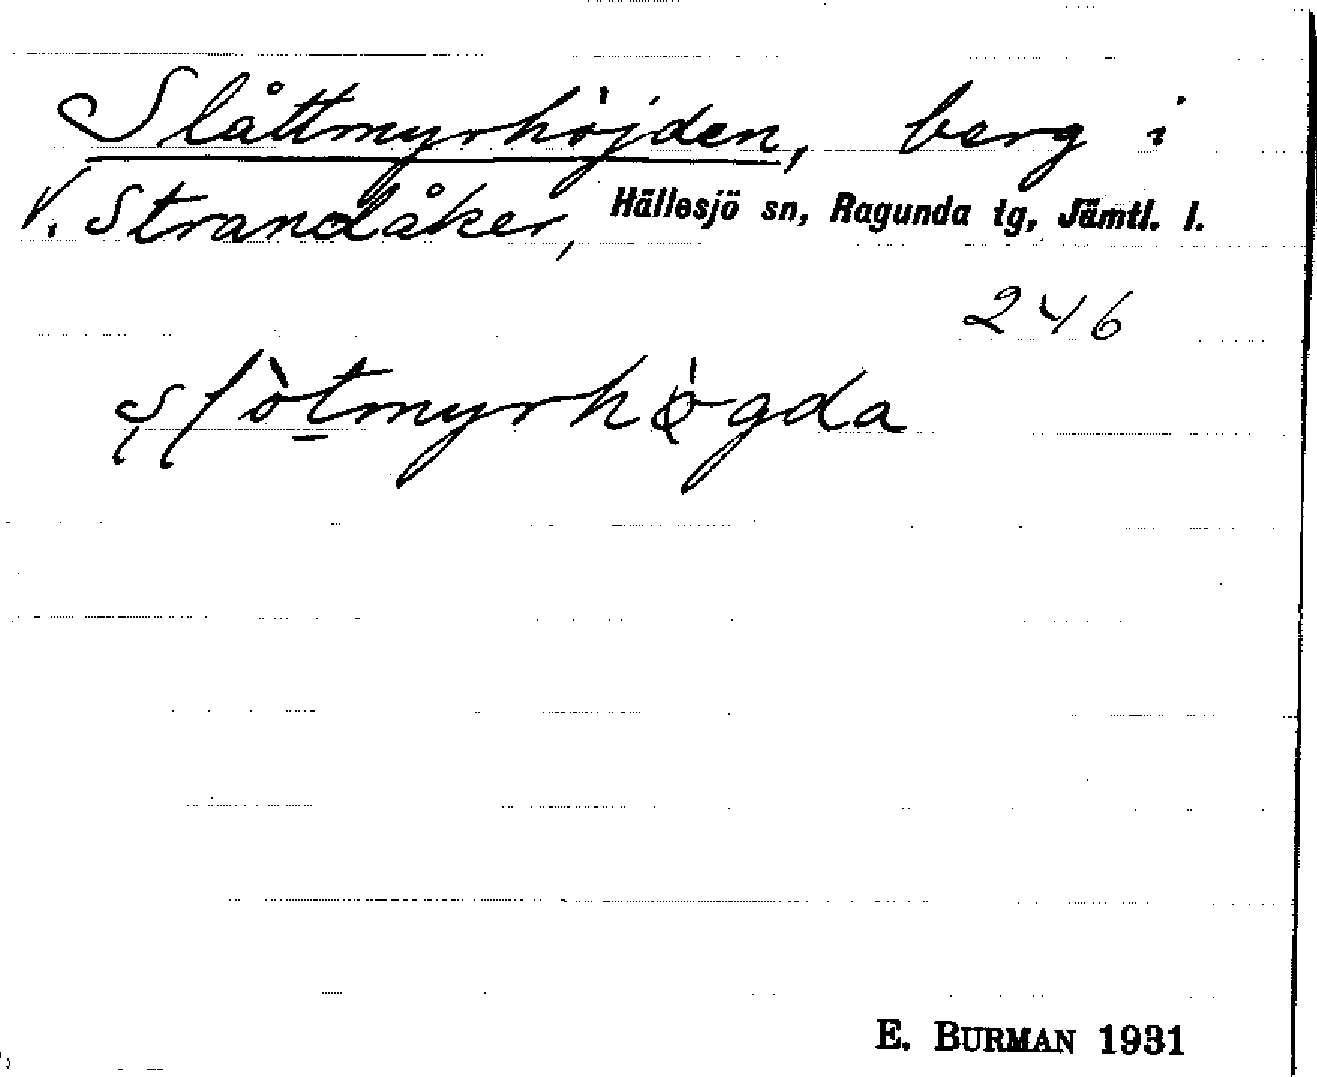 Slåttmyrhöjden, berg i
V. Strandåker, Hällesjö sn, Ragunda tg, Jämtl. l.
246
slòtmyrhøgda
E. BURMAN 1931